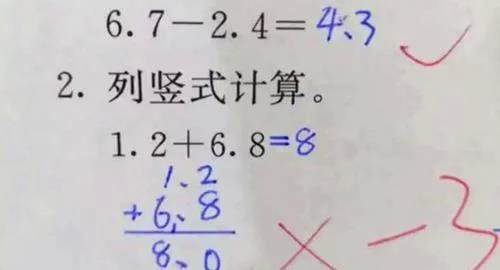 6.7－2.4＝4、3
2. 列竖式计算。
1.2＋6.8=8
1、2
+6、8
8、0
× －3